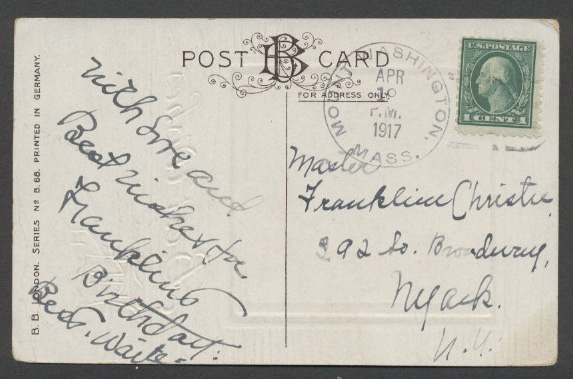 POST CARD
BB
FOR ADDRESS ONLY
MOUNT WASHINGTON, MASS.
APR
P.M.
1917
U.S. POSTAGE
1 CENT 1
B. B. LONDON. SERIES No B.68. PRINTED IN GERMANY.
With love and
Best wishes for
Franklins
Birthday.
Waite.
Master
Franklin Christie
392 So. Broadway,
Nyack.
N.Y.